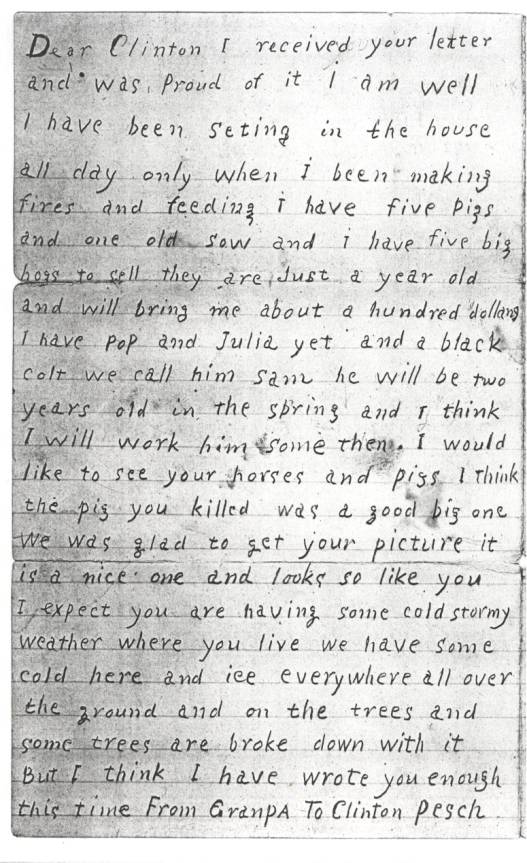 Dear Clinton I received your letter
and was Proud of it I am well
I have been seting in the house
all day only when i been making
fires and feeding i have five pigs
and one old sow and i have five big
hogs to sell they are Just a year old
and will bring me about a hundred dollars
I have pop and Julia yet and a black
colt we call him sam he will be two
years old in the spring and I think
I will work him some then. I would
like to see your horses and pigs I Think
the pig you killed was a good big one
We was glad to get your picture it
is a nice one and looks so like you
I expect you are having some cold stormy
weather where you live we have some
cold here and ice everywhere all over
the ground and on the trees and
some trees are broke down with it
But I think I have wrote you enough
this time From GranpA To Clinton Pesch